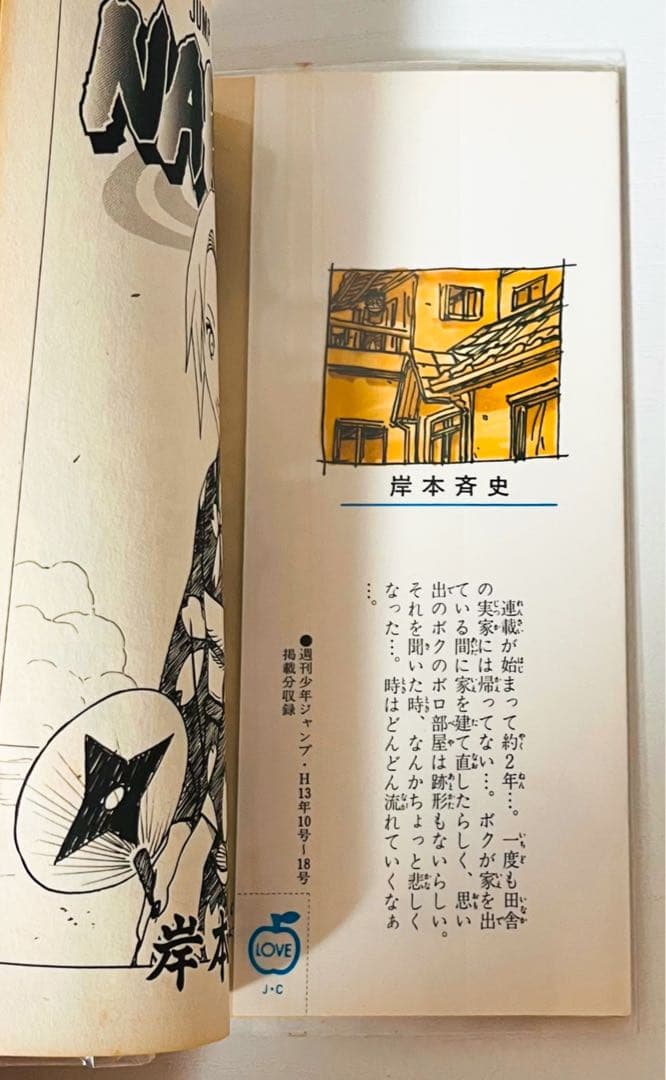 JUM
NA
岸本
岸本斉史
連載が始まって約2年…。一度も田舎
の実家には帰ってない…。ボクが家を出
ている間に家を建て直したらしく、思い
出のボクのボロ部屋は跡形もないらしい。
それを聞いた時、なんかちょっと悲しく
なった…。時はどんどん流れていくなぁ
…。
●週刊少年ジャンプ・H13年10号〜18号
掲載分収録
LOVE
J・C